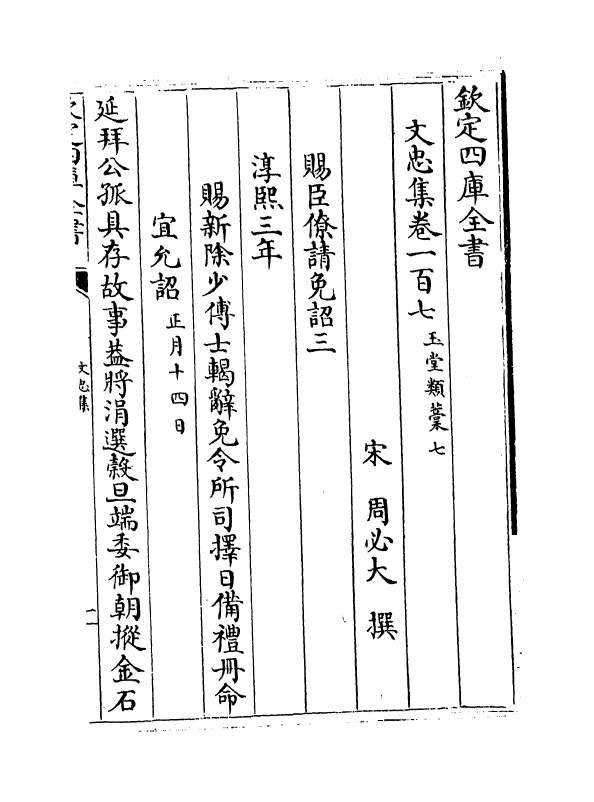 欽定四庫全書
文忠集卷一百七 玉堂類藁七
宋 周必大 撰
賜臣僚請免詔三
淳熙三年
賜新除少傅士輵辭免令所司擇日備禮冊命
宜允詔 正月十四日
延拜公孤具存故事葢將涓選穀旦端委御朝摐金石
欽定四庫全書
文忠集